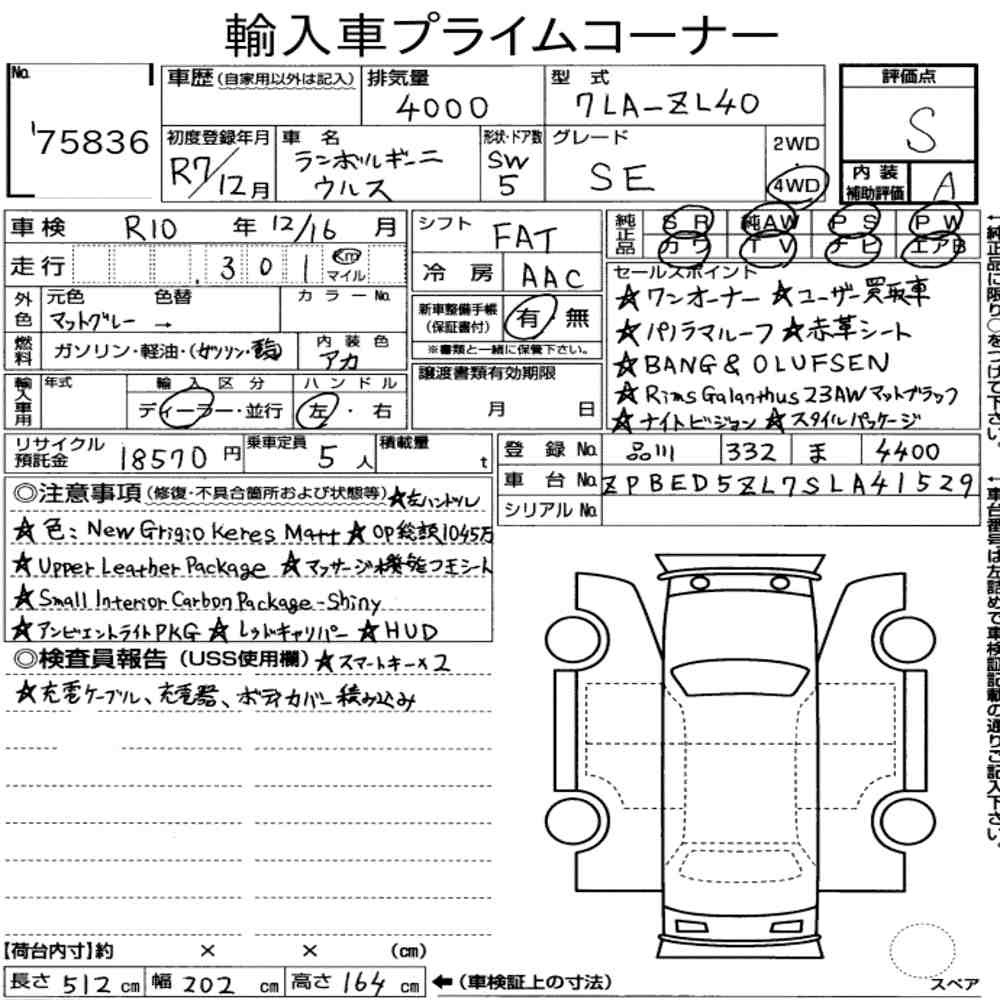 輸入車プライムコーナー
No. 75836
車歴(自家用以外は記入)
排気量 4000
型式 7LA-ZL40
評価点 S
初度登録年月 R7/12月
車名 ランボルギーニ ウルス
形状・ドア数 SW 5
グレード SE
2WD・4WD
内装補助評価 A
車検 R10年12/16月
走行 .301 Km マイル
外色 元色 色替 カラーNo.
マットグレー →
燃料 ガソリン・軽油・(ガソリン・電)
内装色 アカ
輸入車用 年式 輸入区分 ハンドル
ディーラー・並行 左・右
シフト FAT
冷房 AAC
新車整備手帳(保証書付) 有 無
※書類と一緒に保管下さい。
譲渡書類有効期限
月 日
純正品 SR 純AW PS PW
カワ TV ナビ エアB
セールスポイント
★ワンオーナー ★ユーザー買取車
★パノラマルーフ ★赤革シート
★BANG & OLUFSEN
★Rims Galanthus 23AWマットブラック
★ナイトビジョン ★スタイルパッケージ
←純正品に限り○をつけて下さい。
リサイクル預託金 18570円
乗車定員 5人
積載量 t
登録No. 品川 332 ま 4400
車台No. ZPBED5ZL7SLA41529
シリアルNo.
←車台番号は左詰めで車検証記載の通りご記入下さい。
◎注意事項(修復・不具合箇所および状態等)★左ハンドル
★色:New Grigio Keres Matt ★OP総額1045万
★Upper Leather Package ★マッサージ機能フ王シート
★Small Interior Carbon Package-Shiny
★アンビエントライトPKG ★レッドキャリパー ★HUD
◎検査員報告(USS使用欄)★スマートキー×2
★充電ケーブル、充電器、ボディカバー積み込み
【荷台内寸】約 × × (cm)
長さ 512 cm 幅 202 cm 高さ 164 cm ←(車検証上の寸法)
スペア